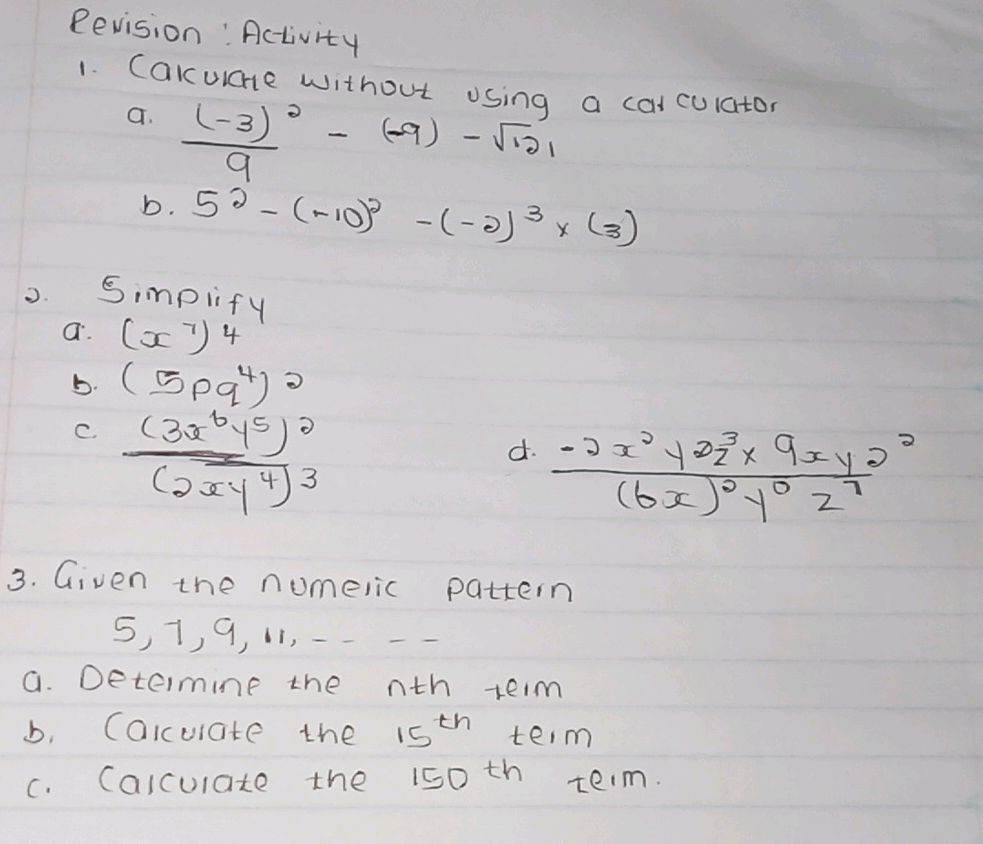 Revision : Activity
1. Calculate without using a calculator
a. (-3)² / 9 - (-9) - √121
b. 5² - (-10)² - (-2)³ x (3)
2. Simplify
a. (x⁷)⁴
b. (5pq⁴)²
c. (3x⁶y⁵)² / (2xy⁴)³
d. -2x²y2z³ x 9xy2² / (6x)²y⁰z⁷
3. Given the numeric pattern
5, 7, 9, 11, -- --
a. Determine the nth term
b. Calculate the 15th term
c. Calculate the 150th term.